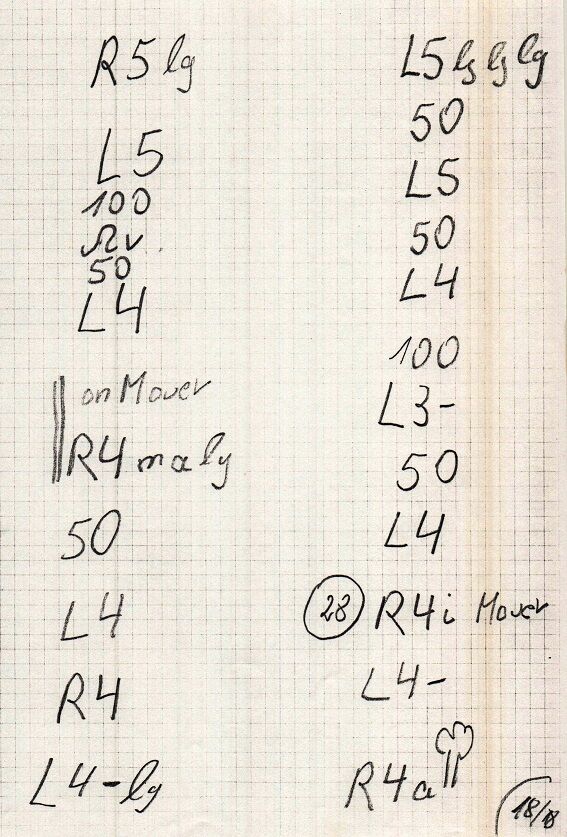 R5 lg
L5
100
50
L4
on Mauer
R4 ma lg
50
L4
R4
L4- lg
L5 lg lg lg
50
L5
50
L4
100
L3-
50
L4
28 R4 i Mauer
L4-
R4 a
18/18